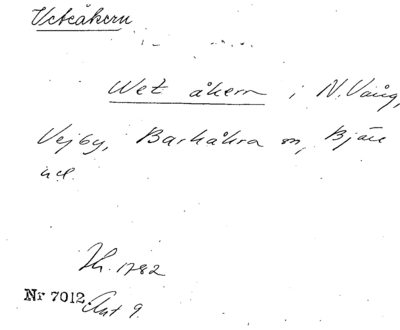 Veteåkern
Wet åkern i N. Vång,
Vejby, Barkåkra sn, Bjäre
hd.
Sk. 1782
Nr 7012. Akt 9.